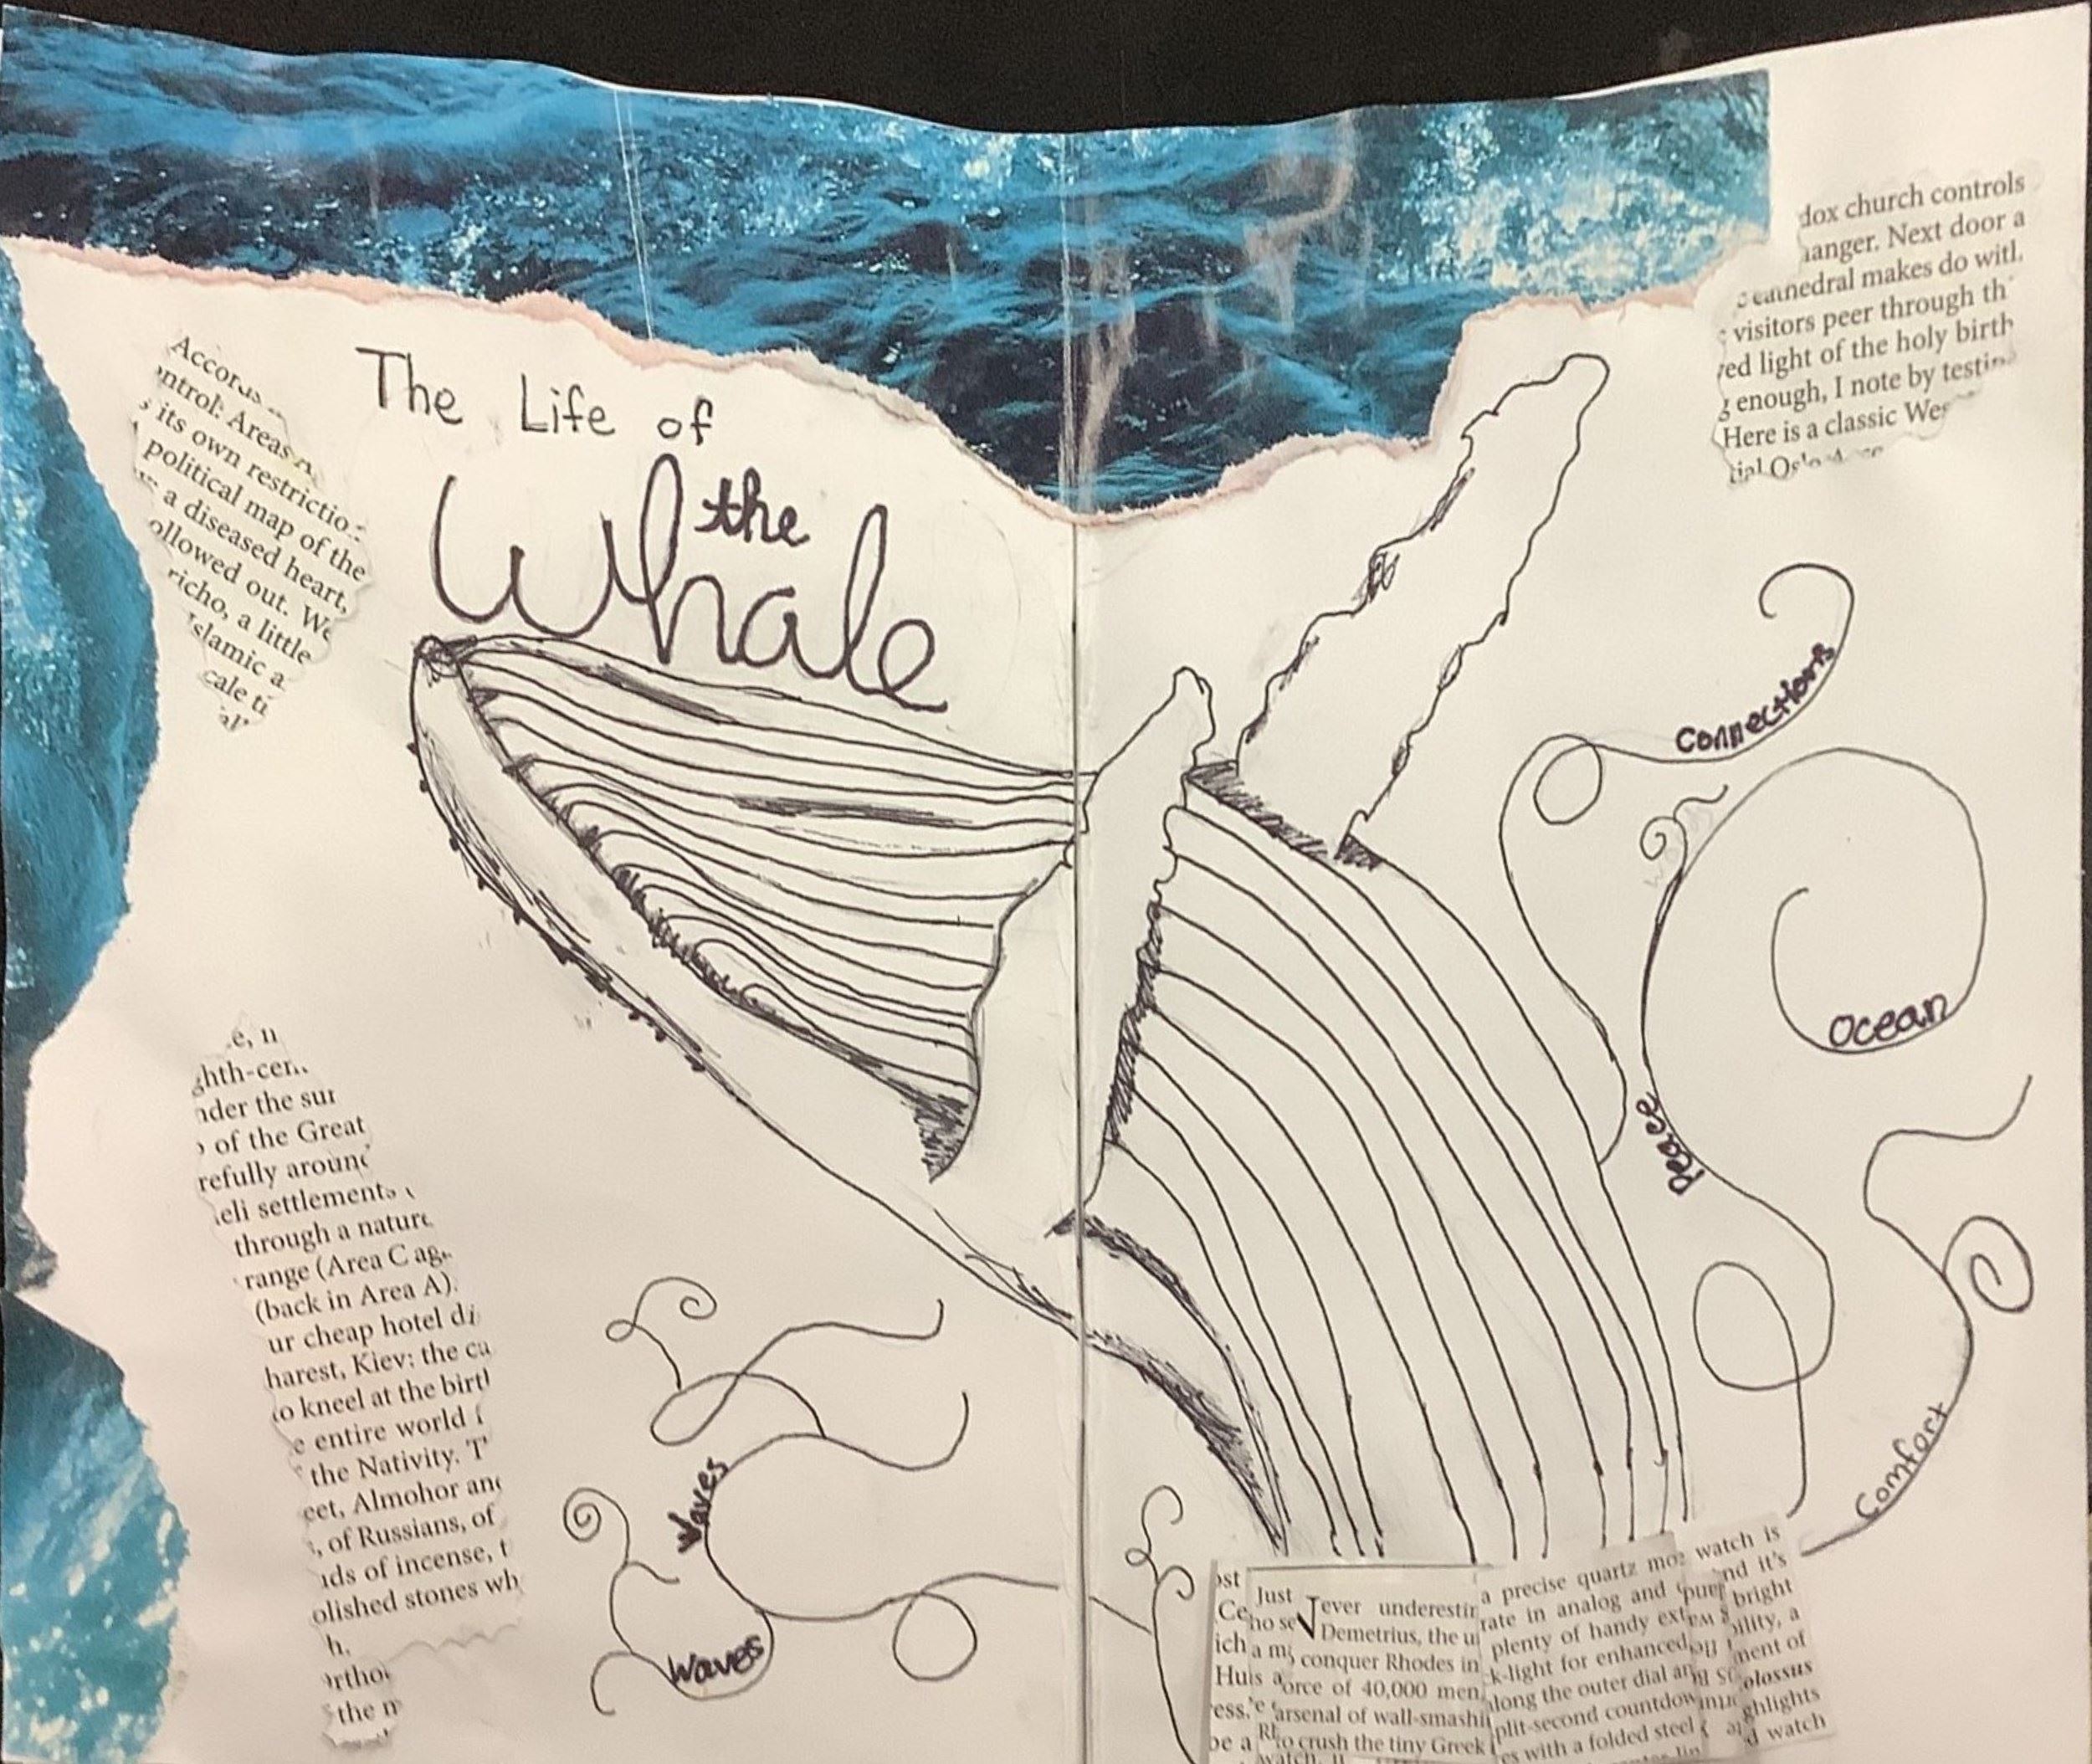 The Life of
the
Whale
ntrol: Areas
its own restrictio
political map of the
a diseased heart,
ollowed out. We
richo, a little
slamic a
cale ti
dox church controls
anger. Next door a
makes do with
visitors peer through th
red light of the holy birth
g enough, I note by testin
Here is a classic Wes
Connections
Ocean
Peace
Comfort
Waves
Waves
e, n
ghth-cen
nder the sur
of the Great
refully around
eli settlements
through a nature
range (Area C ag
(back in Area A).
ur cheap hotel di
harest, Kiev: the ca
to kneel at the birth
e entire world
the Nativity. T
eet, Almohor and
, of Russians, of
ids of incense, t
olished stones wh
h.
rtho
the m
ost
Just
ever underestin
a precise quartz mo
watch is
Ce
ho se
Demetrius, the u
rate in analog and
nd it's
ich
a m
conquer Rhodes in
plenty of handy ext
bright
Huis
orce of 40,000 men,
k-light for enhanced
bility, a
ess.
arsenal of wall-smashi
along the outer dial an
ment of
be a
to crush the tiny Greek
plit-second countdow
olossus
watch,
es with a folded steel
ghlights
d watch